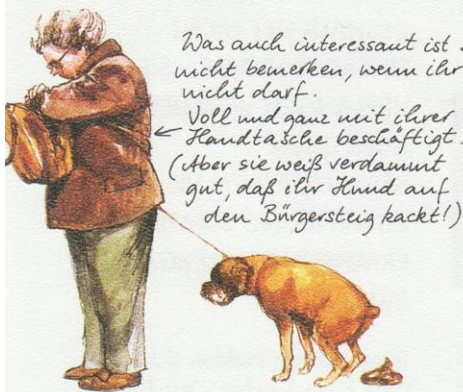 Was auch interessant ist.
nicht bemerken, wenn ihr
nicht darf.
Voll und ganz mit ihrer
Handtasche beschäftigt.
(Aber sie weiß verdammt
gut, daß ihr Hund auf
den Bürgersteig kackt!)